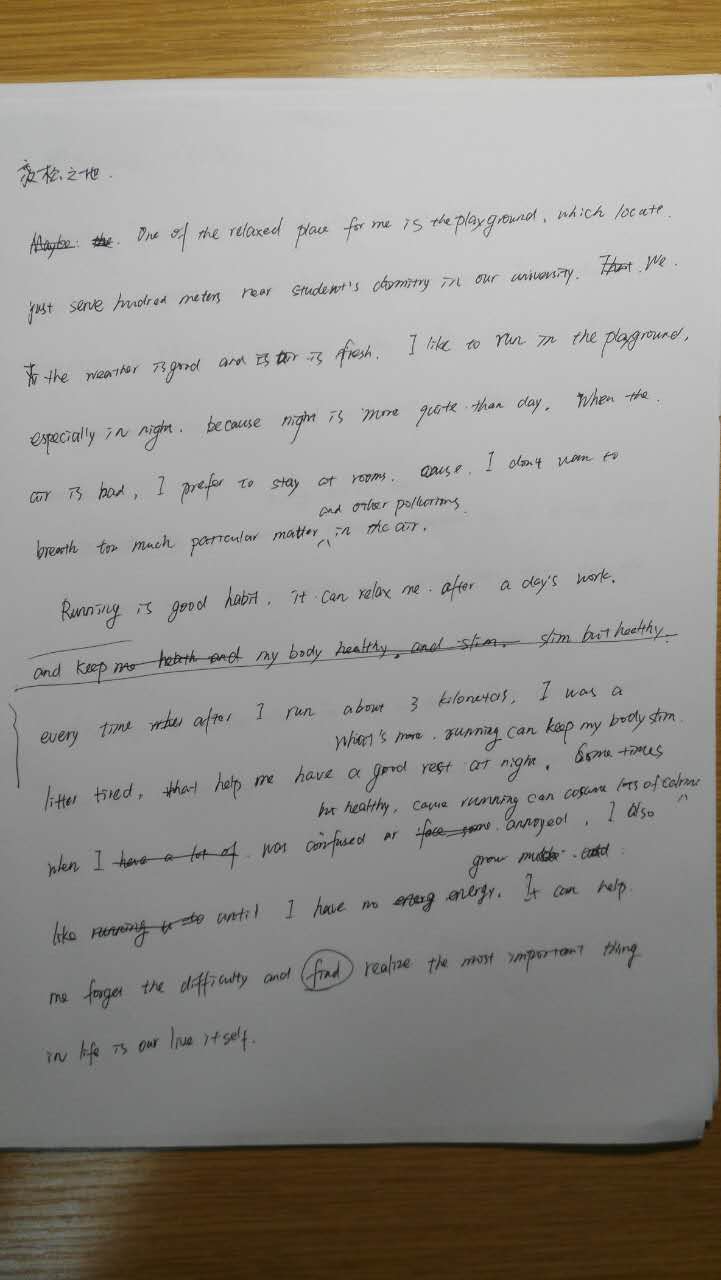 放松之地.
Maybe the. One of the relaxed place for me is the playground, which locate
just serve hundred meters near student's domitry in our university. That We
the weather is good and is air is fresh. I like to run in the playground,
especially in night. because night is more quite than day. When the
air is bad, I prefer to stay at rooms. cause. I don't wan to
and other pollutions.
breath too much particular matter in the air.
Running is good habit. it can relax me after a day's work.
and keep me health and my body healthy. and slim. slim but healthy.
every time when after I run about 3 kilometers, I was a
What's more. running can keep my body slim.
litter tired, that help me have a good rest at night. Some times
but healthy, cause running can cosume lots of
when I have a lot of was confused or face some annoyed, I also
grow
like running until I have no energ energy. It can help
me forget the difficulty and find realize the most important thing
in life is our live itself.